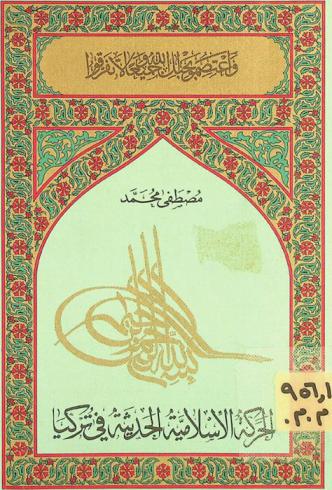 وَاعْتَصِمُوا بِحَبْلِ اللَّهِ جَمِيعًا وَلَا تَفَرَّقُوا
مُصْطَفى مُحَمَّد
بسم الله الرحمن الرحيم
الحَرَكَةُ الإِسْلَامِيَّةُ الحَدِيثَةُ فِي تُرْكِيَا
٩٥٦,١
م.م.